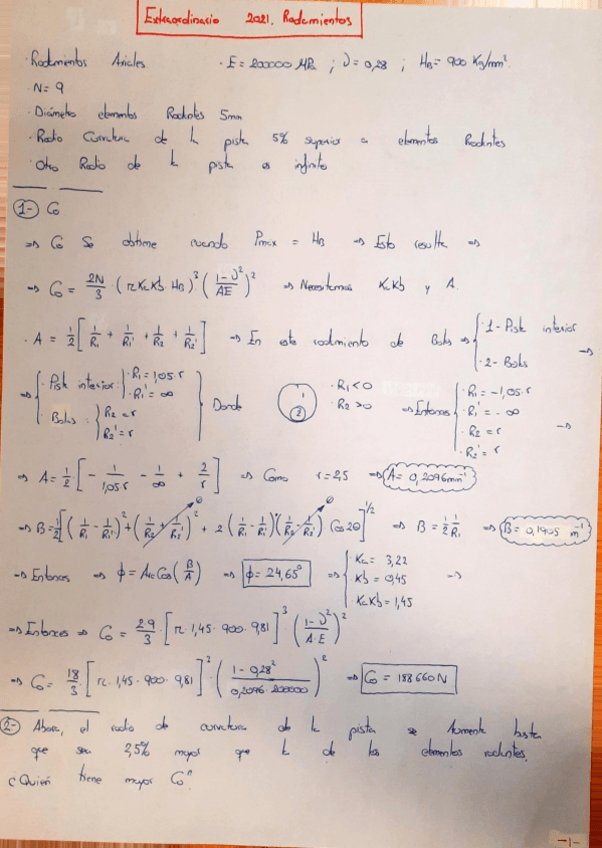 Extraordinario 2021. Rodamientos
· Rodamientos Axiales. · E = 200000 MPa ; ν = 0,28 ; HB = 900 Kg/mm².
· N = 9
· Diámetro elementos Rodantes 5mm
· Radio Curvatura de la pista 5% superior a elementos Rodantes
· Otro Radio de la pista es infinito
1- C₀
⇒ C₀ Se obtiene cuando Pmax = HB ⇒ Esto resulta ⇒
⇒ C₀ = 2N/3 · (π KaKb · HB)³ ((1-ν²)/AE)² ⇒ Necesitamos KaKb y A.
· A = 1/2 [1/R₁ + 1/R₁' + 1/R₂ + 1/R₂'] ⇒ En este rodamiento de Bolas ⇒ { · 1- Pista interior · 2- Bolas ⇒
⇒ { · Pista interior: { · R₁ = 1,05·r · R₁' = ∞ · Bolas: { R₂ = r R₂' = r } Donde 1 2 · R₁ < 0 · R₂ > 0 ⇒ Entonces { · R₁ = -1,05·r · R₁' = -∞ · R₂ = r · R₂' = r ⇒
⇒ A = 1/2 · [ - 1/1,05r - 1/∞ + 2/r ] ⇒ Como r = 2,5 ⇒ A = 0,2096 mm⁻¹
⇒ B = 1/2 [(1/R₁ - 1/R₁')² + (1/R₂ - 1/R₂')² + 2 (1/R₁ - 1/R₁')(1/R₂ - 1/R₂') Cos 2θ]^1/2 ⇒ B = 1/2 1/R₁ ⇒ B = 0,1905 m⁻¹
⇒ Entonces ⇒ ϕ = ArcCos(B/A) ⇒ ϕ = 24,65° ⇒ { · Ka = 3,22 · Kb = 0,45 · KaKb = 1,45 ⇒
⇒ Entonces ⇒ C₀ = 2·9/3 · [π · 1,45 · 900 · 9,81]³ ((1-ν²)/A·E)²
⇒ C₀ = 18/3 · [π · 1,45 · 900 · 9,81]³ · ((1-0,28²)/0,2096 · 200000)² ⇒ C₀ = 188660 N
2- Ahora, el radio de curvatura de la pista se Aumenta hasta
que sea 2,5% mayor que la de los elementos rodantes.
¿Quién tiene mayor C₀"
-1-